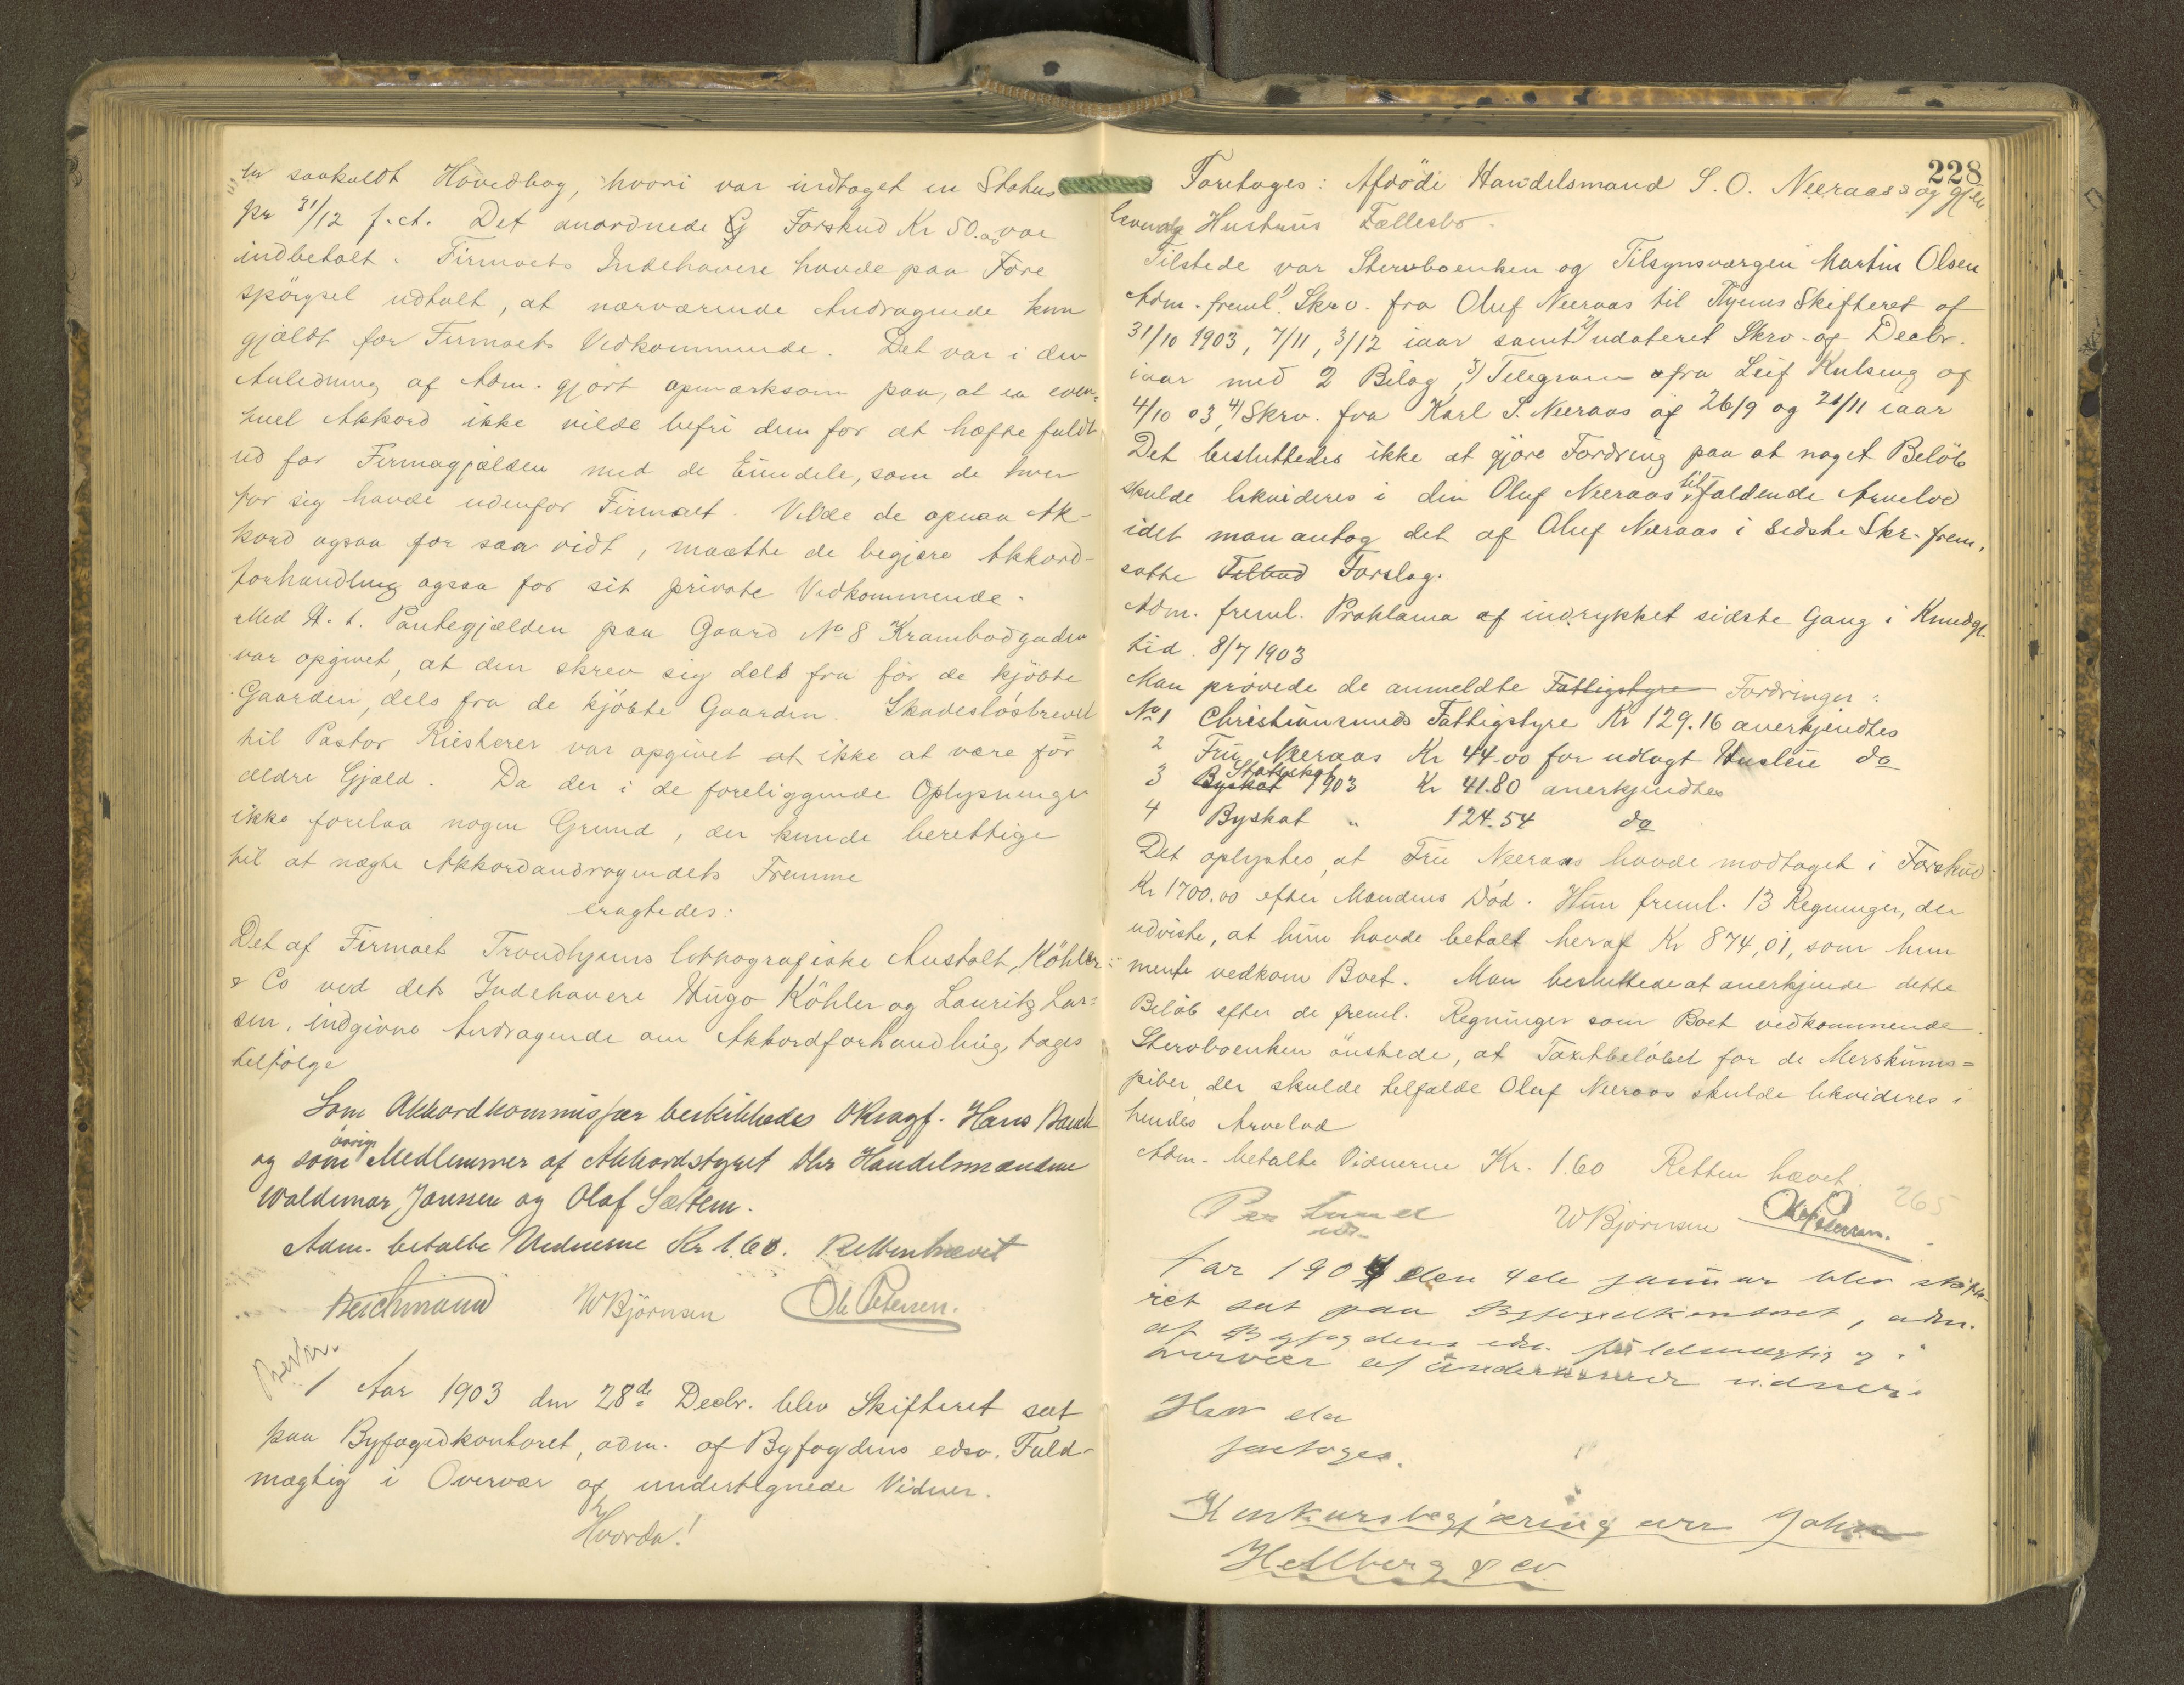 en saakaldt Hovedbog, hvori var indtaget en Status
pr 31/12 f. A. Det anordnede Forskud Kr 50.00 var
indbetalt. Firmaets Indehavere havde paa Fore
spörgsel udtalt, at nærværende Andragende kun
gjaldt for Firmaets Vedkommende. Det var i den
Anledning af Adm. gjort opmærksom paa, at en even-
tuel Akkord ikke vilde befri dem for at hæfte fuldt
ud for Firmagjælden med de Eiendele, som de hver
for sig havde udenfor Firmaet. Vilde de opnaa Ak-
kord ogsaa for saa vidt, maatte de begjære Akkord-
forhandling ogsaa for sit private Vedkommende.
Med H. t. Pantegjælden paa Gaard No 8 Krambodgaden
var opgivet, at den skrev sig dels fra för de kjöbte
Gaarden, dels fra de kjöbte Gaarden. Skadeslösbrevet
til Pastor Riesterer var opgivet at ikke at være for
ældre Gjæld. Da der i de foreliggende Oplysninger
ikke forelaa nogen Grund, der kunde berettige
til at nægte Akkordandragendets Fremme
eragtedes:
Det af Firmaet Trondhjems lithografiske Anstalt, Köhler
& Co ved dets Indehavere Hugo Köhler og Lauritz Lar=
sen, indgivne Andragende om Akkordforhandling, tages
tilfölge
Som Akkordkommissær beskikkedes OKragf. Hans Bauck
og som övrige Medlemmer af Akkordstyret Hr Handelsmændene
Waldemar Janssen og Olaf Sættem.
Adm. betalte Vidnerne Kr 1.60. Retten hævet
Reichmann WBjörnsen Ole Petersen.
Aar 1903 den 28de Decbr. blev Skifteret sat
paa Byfogedkontoret, adm. af Byfogdens edsv. Fuld-
mægtig i Overvær af undertegnede Vidner.
Hvorda!
228
Foretoges: Afdöde Handelsmand S. O. Neeraas og gjen
levende Hustrus Fællesbo.
Tilstede var Stervboenken og Tilsynsværgen Martin Olsen
Adm. freml. 1) Skrv. fra Oluf Neeraas til Skifteret af
31/10 1903, 7/11, 3/12 iaar samt 2) udateret Skrv. af Decbr.
iaar med 2 Bilag, 3) Telegram fra Leif Kulseng af
4/10 03, 4) Skrv. fra Karl S. Neeraas af 26/9 og 21/11 iaar
Det besluttedes ikke at gjöre Fordring paa at noget Belöb
skulde likvideres i den Oluf Neeraas tilfaldende Arvelod
idet man antog det af Oluf Neeraas i sidste Skr. frem-
satte Tilbud Forslag.
Adm. freml. Proklama af indrykket sidste Gang i Kundgj.
tid. 8/7 1903
Man prövede de anmeldte Fattigstyre Fordringer:
No 1 Christiansunds Fattigstyre Kr 129.16 anerkjendtes
2 Fru Neeraas Kr 44.00 for udlagt Husleie do
3 Byskat Statsskat 1903 Kr 41.80 anerkjendtes
4 Byskat " 124.54 do
Det oplystes, at Fru Neeraas havde modtaget i Forskud
Kr 1700.00 efter Mandens Död. Hun freml. 13 Regninger, der
udviste, at hun havde betalt heraf Kr 874,01, som hun
mente vedkom Boet. Man besluttede at anerkjende dette
Belöb efter de freml. Regninger som Boet vedkommende.
Stervboenken önskede, at Taxtbelöbet for de Merskums=
piber, der skulde tilfalde Oluf Neeraas skulde likvideres i
hendes Arvelod
Adm. betalte Vidnerne Kr. 1.60 Retten hævet.
265
Per Lund WBjörnsen Ole Petersen.
Aar 1904 den 4de januar blev skifte-
ret sat paa Byfogedkontoret, adm.
af Byfogdens edsv. fuldmægtig i
overvær af vidner.
Hvor da
foretoges.
Konkursbegjæring over John
Hellberg & co